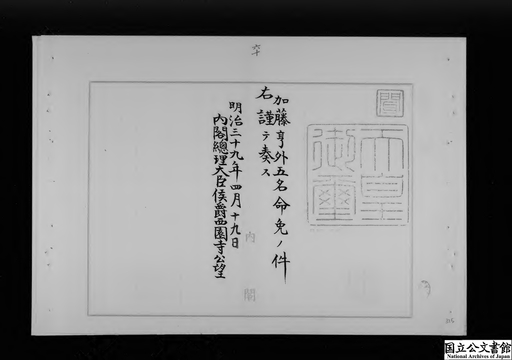 六十
聞
天皇御璽
加藤亨外五名命免ノ件
右謹テ奏ス
明治三十九年四月十九日
内閣總理大臣侯爵西園寺公望
内閣
国立公文書館
National Archives of Japan